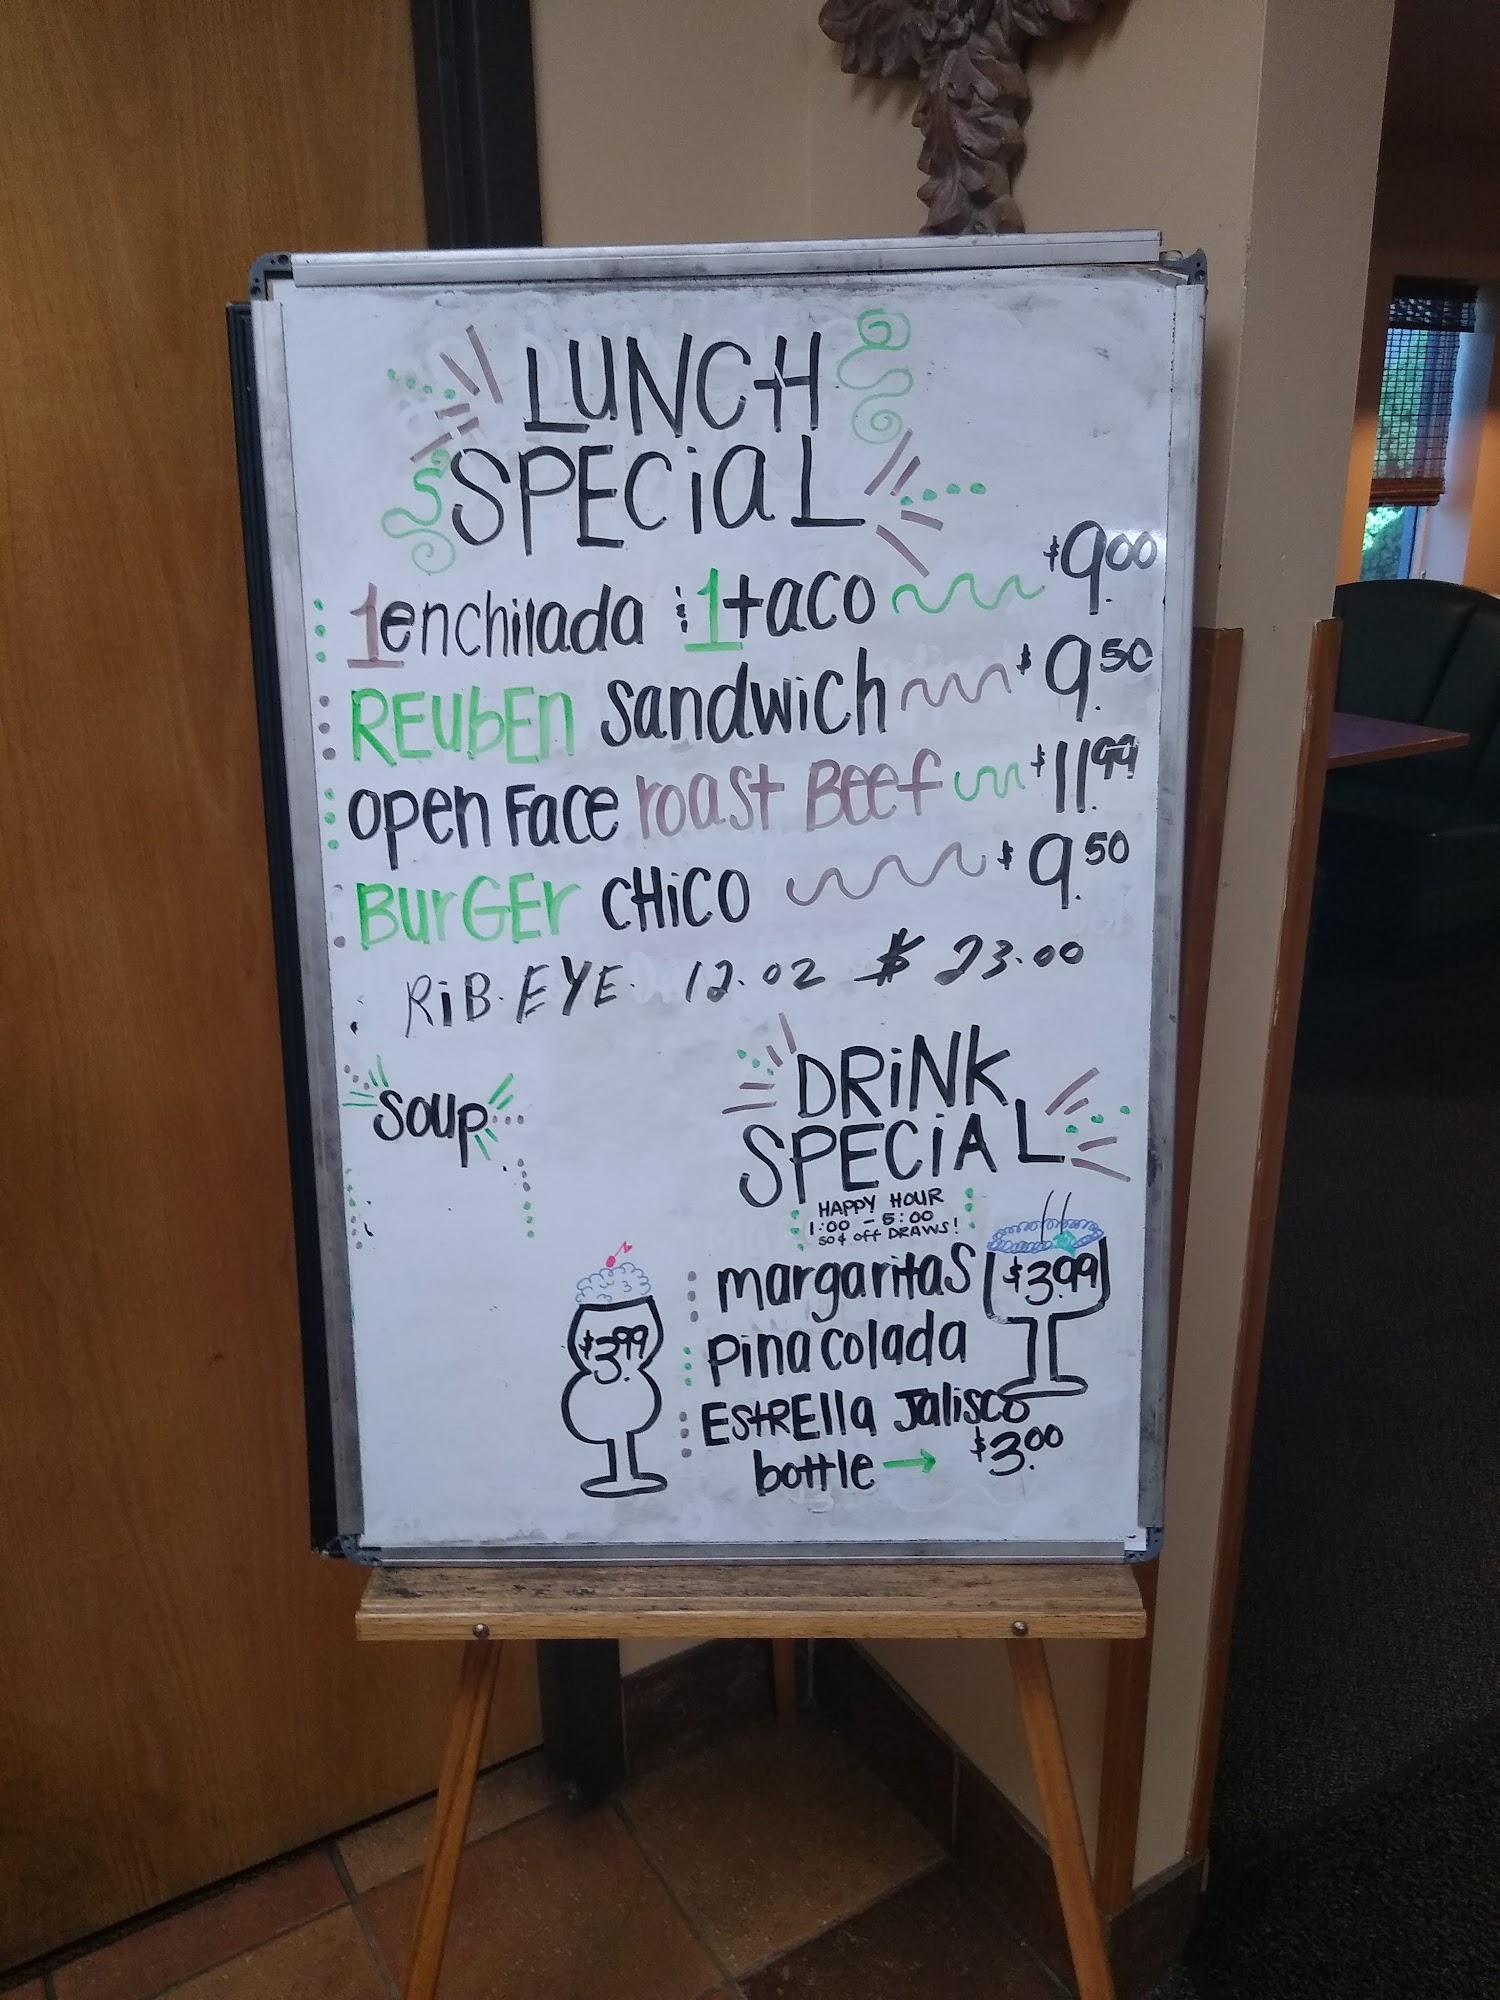 LUNCH
SPECiaL
1 enchilada & 1 taco $9.00
REUbEn sandwich $9.50
open Face roast BEEF $11.99
BurGEr CHiCO $9.50
RiB.EYE. 12.OZ $ 23.00
soup
DRiNK
SPECiAL
HAPPY HOUR
1:00 - 5:00
50¢ off DRAWS!
margaritas $3.99
pina colada $3.99
EstRElla Jalisco
bottle → $3.00